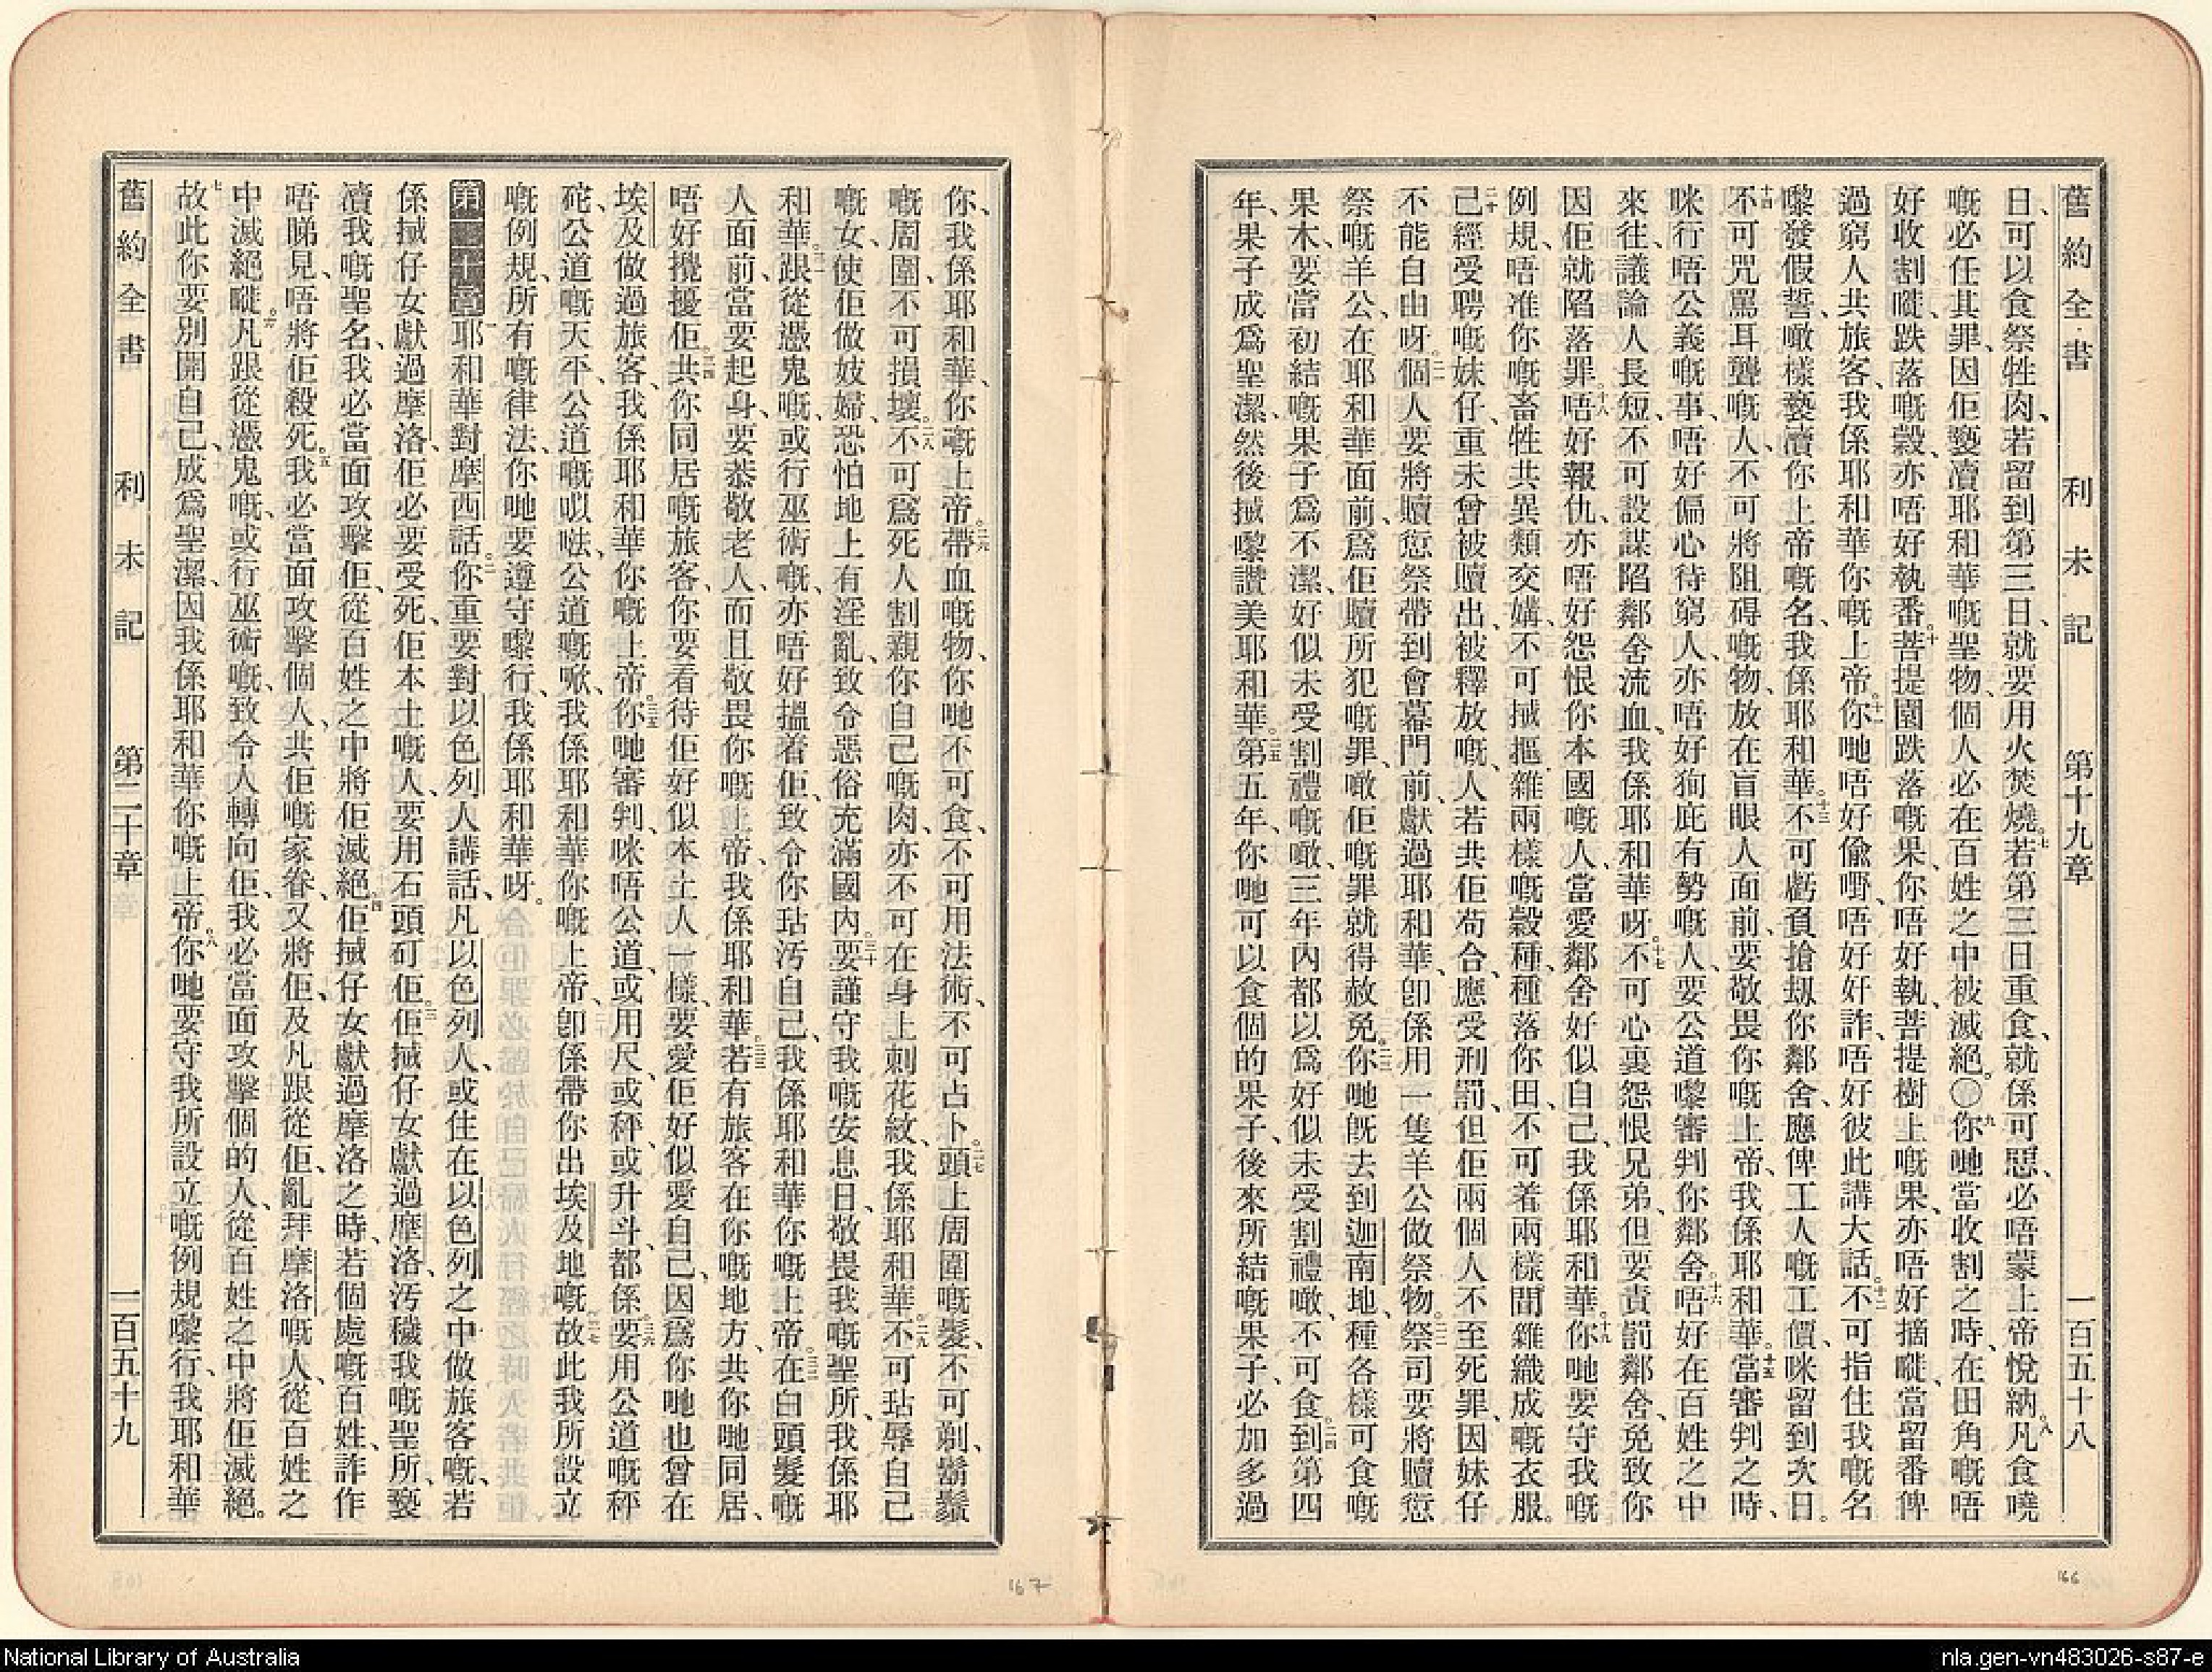 舊約全書 利未記 第十九章 一百五十八
日、可以食祭牲肉、若留到第三日、就要用火焚燒。七若第三日重食、就係可惡、必唔蒙上帝悅納。八凡食嘵
嘅必任其罪、因佢褻瀆耶和華嘅聖物、個人必在百姓之中被滅絕。〇九你哋當收割之時、在田角嘅唔
好收割嘥、跌落嘅穀、亦唔好執番。十菩提園跌落嘅果、你唔好執、菩提樹上嘅果、亦唔好摘嘥、當留番俾
過窮人共旅客、我係耶和華你嘅上帝。十一你哋唔好偸嘢、唔好奸詐、唔好彼此講大話。十二不可指住我嘅名
嚟發假誓、噉樣褻瀆你上帝嘅名、我係耶和華。十三不可虧負搶刼你鄰舍、應俾工人嘅工價、咪留到次日。
十四不可咒罵耳聾嘅人、不可將阻碍嘅物、放在盲眼人面前、要敬畏你嘅上帝、我係耶和華。十五當審判之時、
咪行唔公義嘅事、唔好偏心待窮人、亦唔好狥庇有勢嘅人、要公道嚟審判你鄰舍。十六唔好在百姓之中
來往、議論人長短、不可設謀陷鄰舍流血、我係耶和華呀。十七不可心裏怨恨兄弟、但要責罰鄰舍、免致你
因佢就陷落罪。十八唔好報仇、亦唔好怨恨你本國嘅人、當愛鄰舍好似自己、我係耶和華。十九你哋要守我嘅
例規、唔准你嘅畜牲共異類交媾、不可𢫏摳雜兩樣嘅穀種、種落你田、不可着兩樣間雜織成嘅衣服。
二十己經受聘嘅妹仔、重未曾被贖出、被釋放嘅、人若共佢苟合、應受刑罰、但佢兩個人不至死罪、因妹仔
不能自由呀。二一個人要將贖愆祭帶到會幕門前、獻過耶和華、卽係用一隻羊公做祭物。二二祭司要將贖愆
祭嘅羊公、在耶和華面前、爲佢贖所犯嘅罪、噉佢嘅罪就得赦免。二三你哋旣去到迦南地、種各樣可食嘅
果木、要當初結嘅果子爲不潔、好似未受割禮嘅噉、三年內都以爲好似未受割禮噉、不可食。二四到第四
年、果子成爲聖潔、然後𢫏嚟讚美耶和華。二五第五年、你哋可以食個的果子、後來所結嘅果子、必加多過
你、我係耶和華、你嘅上帝。二六帶血嘅物、你哋不可食、不可用法術、不可占卜。二七頭上周圍嘅髮、不可剃、鬍鬚
嘅周圍、不可損壞。二八不可爲死人割親你自己嘅肉、亦不可在身上刺花紋、我係耶和華。二九不可玷辱自己
嘅女、使佢做妓婦、恐怕地上有淫亂、致令惡俗充滿國內。三十要謹守我嘅安息日、敬畏我嘅聖所、我係耶
和華。三一跟從憑鬼嘅、或行巫術嘅、亦唔好搵着佢、致令你玷汚自己、我係耶和華你嘅上帝。三二在白頭髮嘅
人面前、當要起身、要恭敬老人、而且敬畏你嘅上帝、我係耶和華。三三若有旅客在你嘅地方、共你哋同居、
唔好攪擾佢。三四共你同居嘅旅客、你要看待佢好似本土人一樣、要愛佢好似愛自己、因爲你哋也曾在
埃及做過旅客、我係耶和華你嘅上帝。三五你哋審判、咪唔公道、或用尺、或秤、或升斗、都係。三六要用公道嘅秤
砣、公道嘅天平、公道嘅㕥𠹌、公道嘅㗅、我係耶和華你嘅上帝、卽係帶你出埃及地嘅。三七故此我所設立
嘅例規、所有嘅律法、你哋要遵守嚟行、我係耶和華呀。
第二十章 一耶和華對摩西話。二你重要對以色列人講話、凡以色列人、或住在以色列之中做旅客嘅、若
係𢫏仔女獻過摩洛、佢必要受死、佢本土嘅人、要用石頭矴佢。三佢𢫏仔女獻過摩洛、汚穢我嘅聖所、褻
瀆我嘅聖名、我必當面攻擊佢、從百姓之中將佢滅絕。四佢𢫏仔女獻過摩洛之時、若個處嘅百姓、詐作
唔睇見、唔將佢殺死。五我必當面攻擊個人、共佢嘅家眷、又將佢、及凡跟從佢、亂拜摩洛嘅人、從百姓之
中滅絕嘥。六凡跟從憑鬼嘅、或行巫術嘅、致令人轉向佢、我必當面攻擊個的人、從百姓之中將佢滅絕。
七故此你要別開自己、成爲聖潔、因我係耶和華你嘅上帝。八你哋要守我所設立嘅例規嚟行、我耶和華
舊約全書 利未記 第二十章 一百五十九
167
166
National Library of Australia
nla.gen-vn483026-s87-e